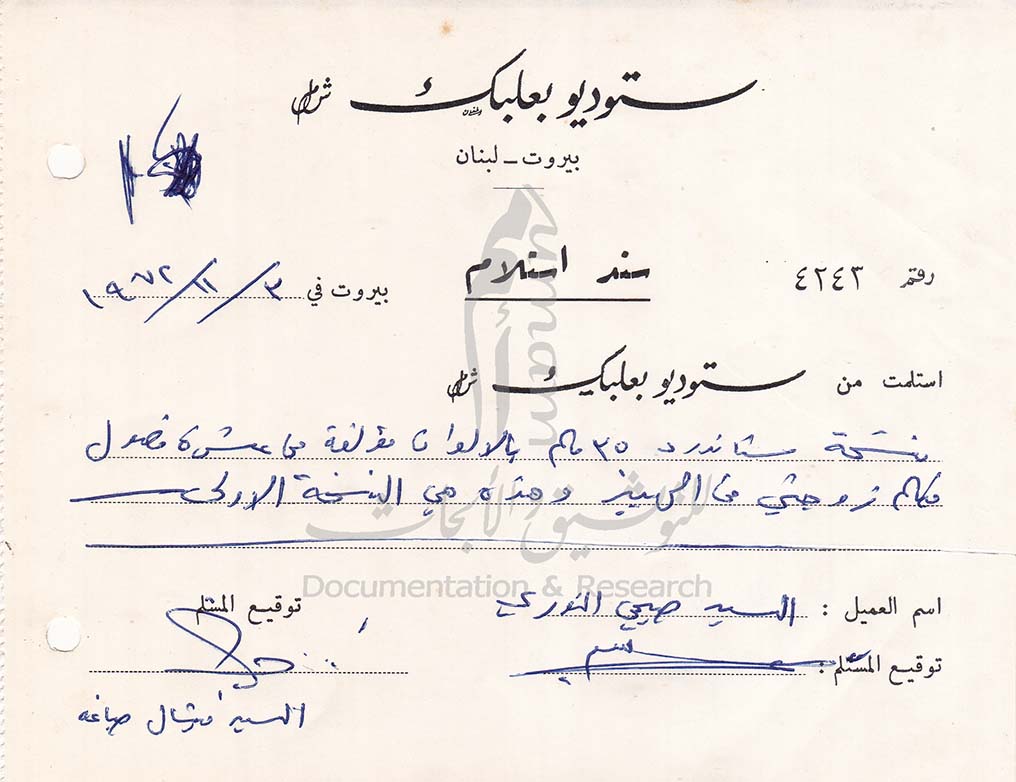 ستوديو بعلبك ش.م.ل
بيروت - لبنان
رقم ٤٢٤٣
سند استلام
بيروت في ٣/١١/١٩٧٢
استلمت من ستوديو بعلبك ش.م.ل
نسخة ستاندرد ٣٥ ملم بالالوان مؤلفة من عشرة فصول
فيلم زوجتي من الهيبيز وهذه هي النسخة الاولى
اسم العميل : السيد صبحي النوري
توقيع المستلم
توقيع المسلم :
السيد ميشال صباغه
Umam
للتوثيق والأبحاث
Documentation & Research